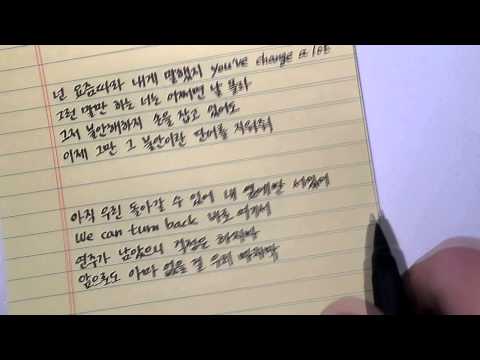 넌 요즘따라 내게 말했지 you've change a lot
그런 말만 하는 너는 어쩌면 날 몰라
그저 불안해하지 손을 잡고 있어도
이제 그만 그 불안이란 단어를 지워줘
아직 우린 돌아갈 수 있어 내 옆에만 서있어
we can turn back 바로 여기서
연주가 남았으니 걱정은 하지마
앞으로도 아마 없을 걸 우리 마지막